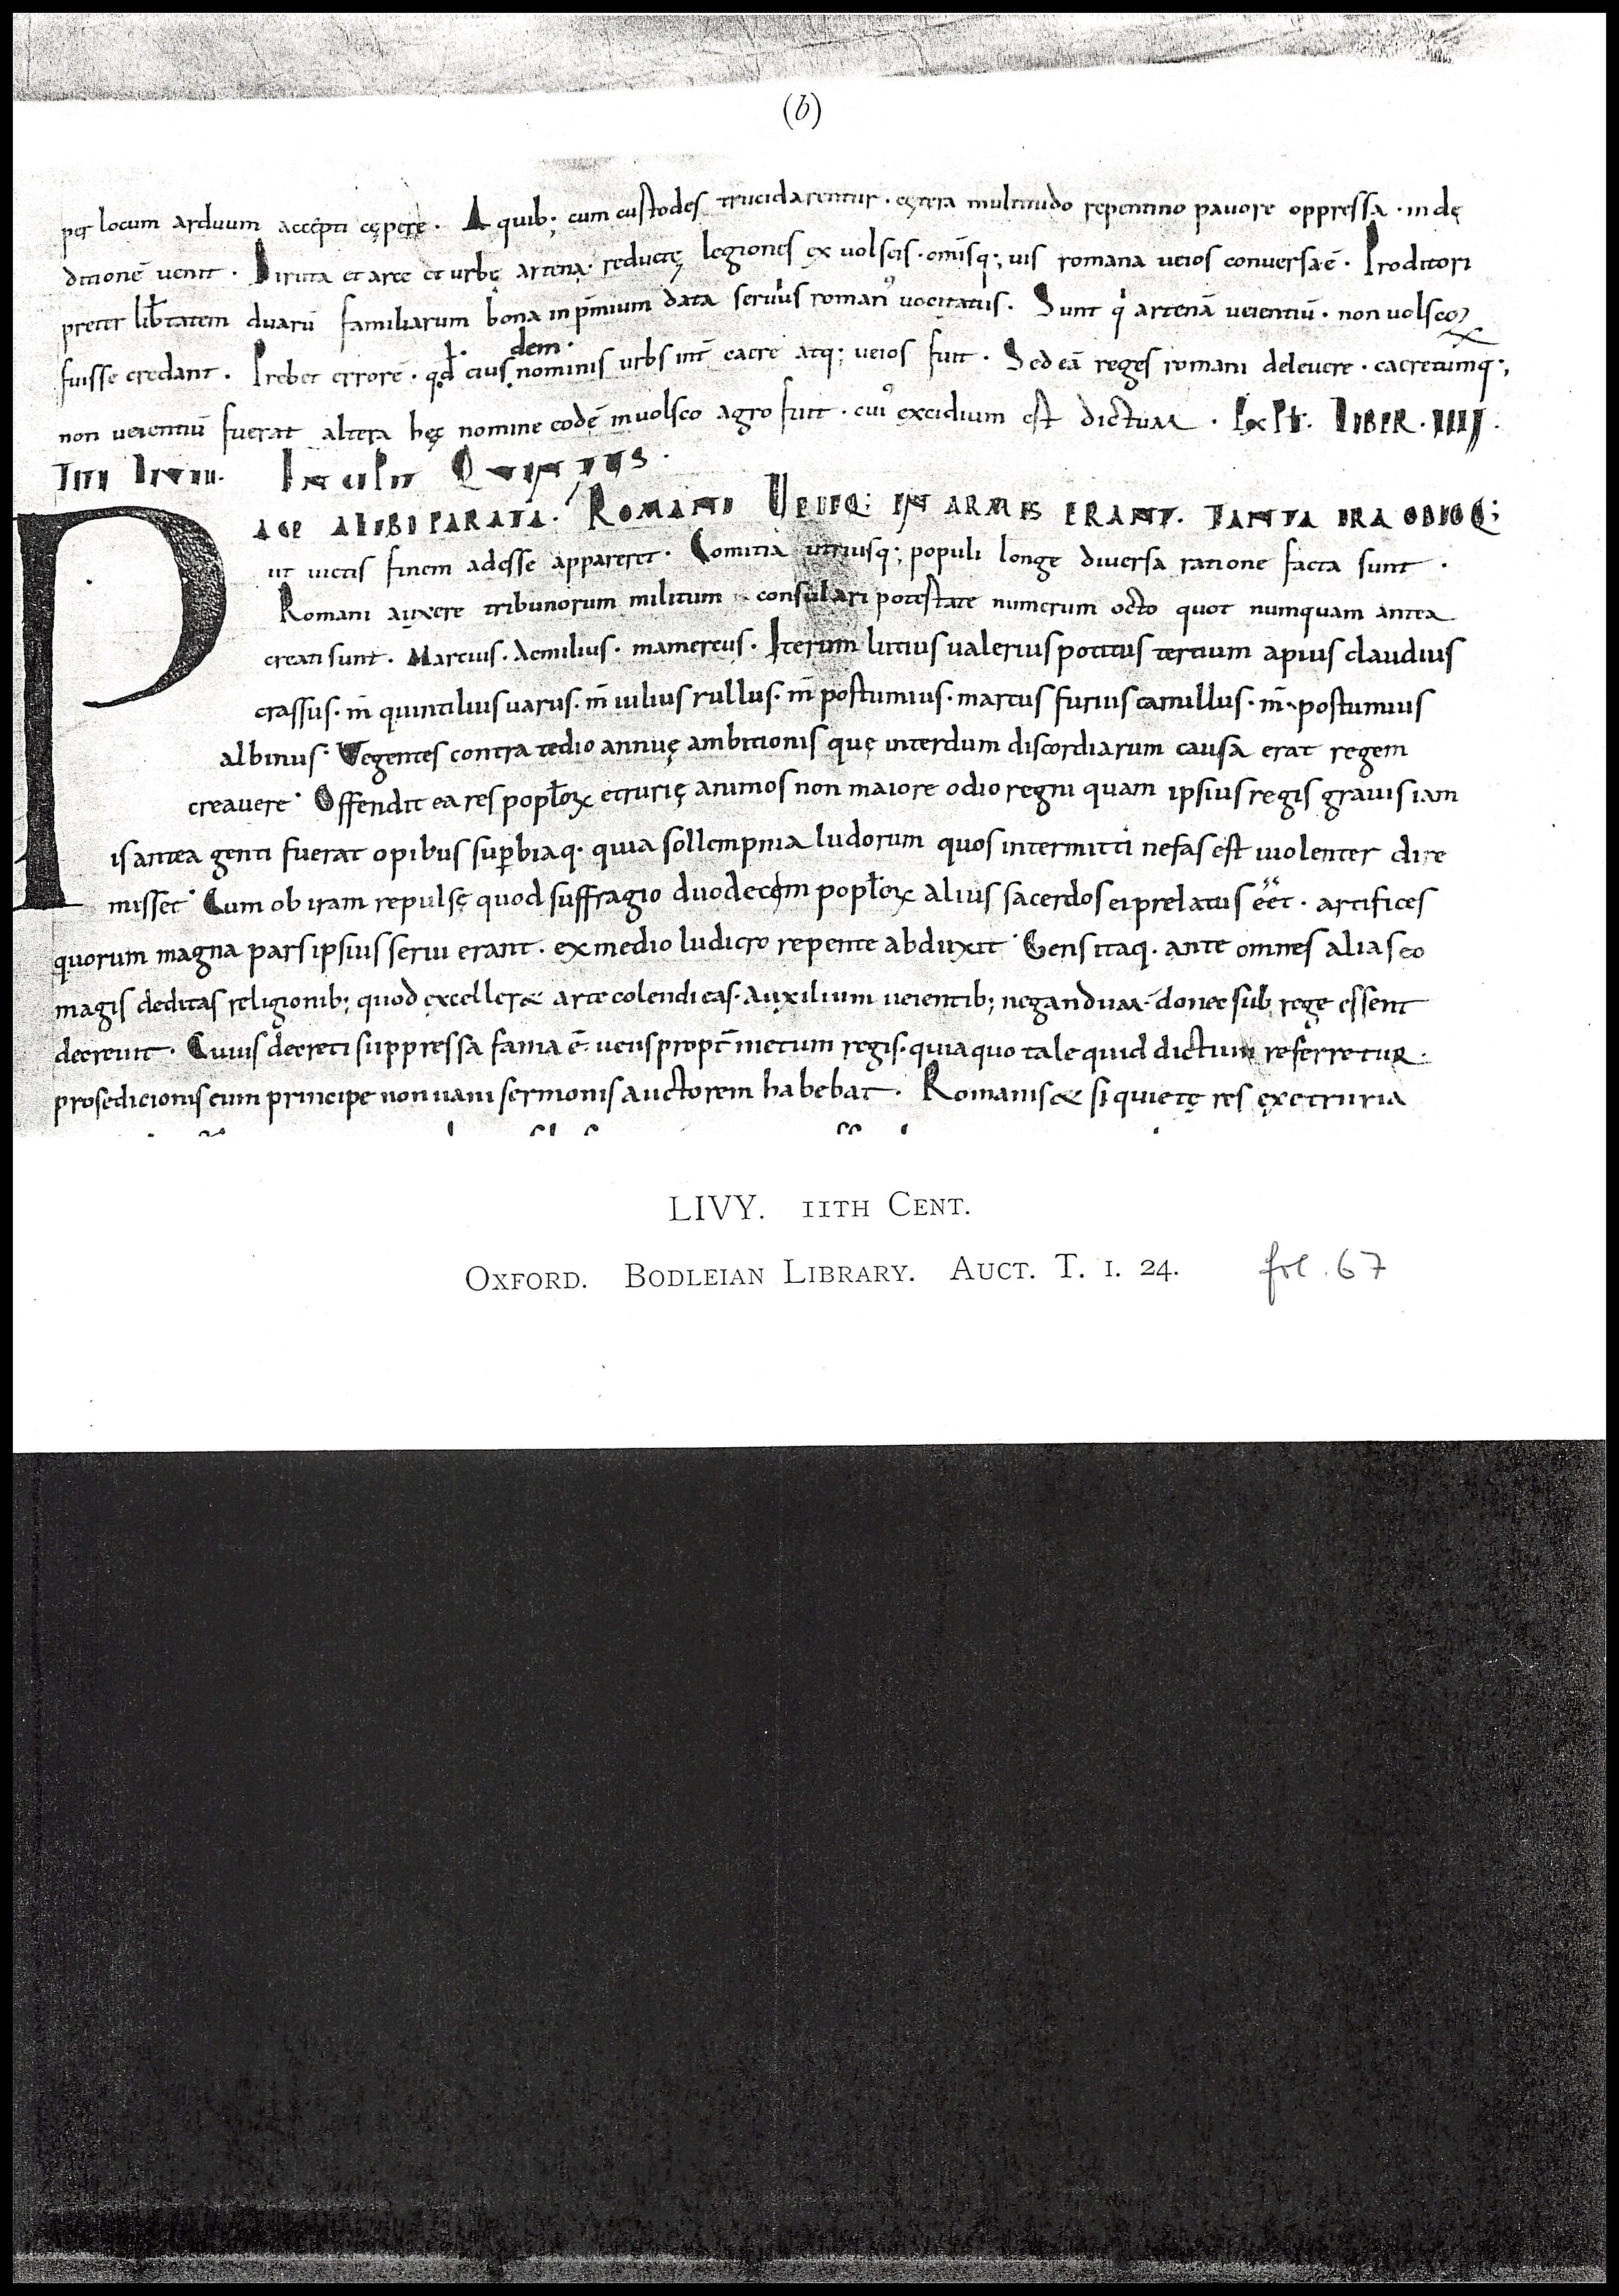 (b)
per locum arduum accepti cępere . A quib; cum custodes trucidarentur . cętera multitudo repentino pavore oppressa . in dę
ditionē venit . Diruta et arce et urbę artena . reductę legiones ex volscis . omīsq; vis romana veios conversa ē . Proditori
preter lib̄tatem duarū familiarum bona in p̄mium data servius romanꝰ vocitatus . Sunt qͥ artenā veientiū . non volscoꝝ
fuisse credant . Prebet errorē . qd̄ eiusdem nominis urbs int̄ caere atq; veios fuit . Sed eā reges romani delevere . caeretumq;,
non veientiū fuerat altera hęc nomine eodē in volsco agro fuit . cuiꝰ excidium est dictum . ExPł. LIBER . IIII .
TITI LIVII . INCIPIT QUINTUS .
PACE ALIBI PARATA . ROMANI VEIIQ; IN ARMIS ERANT . TANTA IRA ODIOQ;
ut victis finem adesse appareret . Comitia utriusq; populi longe diversa ratione facta sunt .
Romani auxere tribunorum militum consulari potestate numerum octo quot numquam antea
creati sunt . Marcius . Aemilius . mamercus . Iterum lucius valerius potitus tertium apius claudius
crassus . m̄ quintilius varus . m̄ iulius rullus . m̄ postumius . marcus furius camillus . m̄ . postumius
albinus . Vegentes contra tedio annuę ambitionis quę interdum discordiarum causa erat regem
creavere . Offendit ea res popl̄oꝝ etrurię animos non maiore odio regni quam ipsius regis gravis iam
is antea genti fuerat opibus sup̄biaq. quia sollempnia ludorum quos intermitti nefas est violenter dire
misset . Cum ob iram repulsę quod suffragio duodecem popl̄oꝝ alius sacerdos ei prelatus eēt . artifices
quorum magna pars ipsius servi erant . ex medio ludicro repente abduxit . Gens itaq. ante omnes alias eo
magis deditas religionib; quod exceller& arte colendi eas . Auxilium veientib; negandum . donec sub rege essent
decrevit . Cuius decreti suppressa fama ē . veus propt̄ metum regis . quia quo tale quid dictum referretur .
pro sedicionis eum principe non vani sermonis auctorem habebat . Romanis & si quietę res ex etruria
LIVY. 11TH CENT.
OXFORD. BODLEIAN LIBRARY. AUCT. T. 1. 24. fol. 67